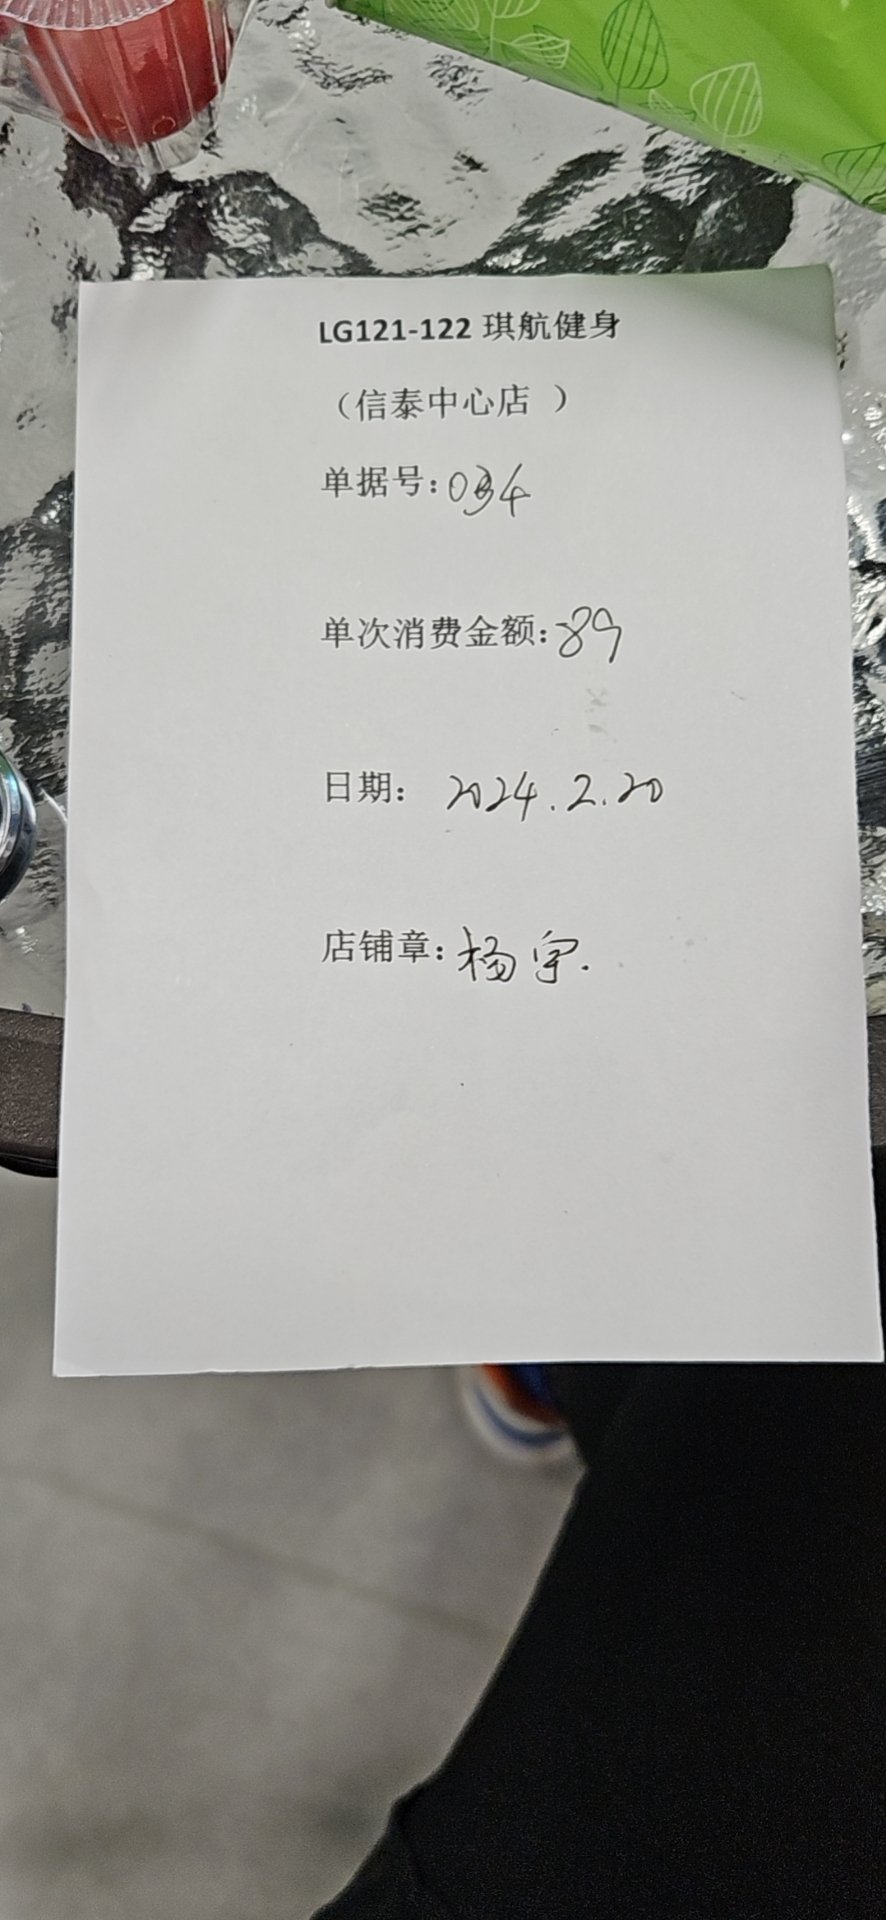 LG121-122 琪航健身
（信泰中心店 ）
单据号：034
单次消费金额：89
日期： 2024.2.20
店铺章：杨宇.